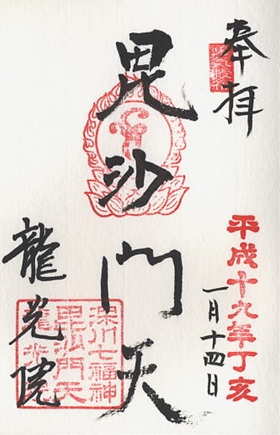 奉拝
平成十九年丁亥
一月十四日
毘沙門天
深川七福神
毘沙門天
龍光院
龍光院